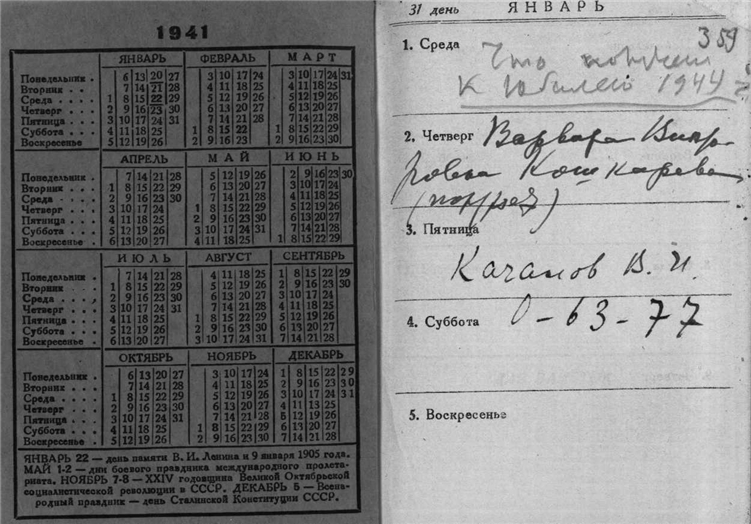 1941
ЯНВАРЬ ФЕВРАЛЬ МАРТ
Понедельник . 6 13 20 27 3 10 17 24 3 10 17 24 31
Вторник . . 7 14 21 28 4 11 18 25 4 11 18 25
Среда . . . . 1 8 15 22 29 5 12 19 26 5 12 19 26
Четверг . . . 2 9 16 23 30 6 13 20 27 6 13 20 27
Пятница . . . 3 10 17 24 31 7 14 21 28 7 14 21 28
Суббота . . . 4 11 18 25 1 8 15 22 1 8 15 22 29
Воскресенье 5 12 19 26 2 9 16 23 2 9 16 23 30
АПРЕЛЬ МАЙ ИЮНЬ
Понедельник . 7 14 21 28 5 12 19 26 2 9 16 23 30
Вторник . . . 1 8 15 22 29 6 13 20 27 3 10 17 24
Среда . . . . 2 9 16 23 30 7 14 21 28 4 11 18 25
Четверг . . . 3 10 17 24 1 8 15 22 29 5 12 19 26
Пятница . . . 4 11 18 25 2 9 16 23 30 6 13 20 27
Суббота . . . 5 12 19 26 3 10 17 24 31 7 14 21 28
Воскресенье . 6 13 20 27 4 11 18 25 1 8 15 22 29
ИЮЛЬ АВГУСТ СЕНТЯБРЬ
Понедельник . 7 14 21 28 4 11 18 25 1 8 15 22 29
Вторник . . 1 8 15 22 29 5 12 19 26 2 9 16 23 30
Среда . . . . 2 9 16 23 30 6 13 20 27 3 10 17 24
Четверг . . . 3 10 17 24 31 7 14 21 28 4 11 18 25
Пятница . . . 4 11 18 25 1 8 15 22 29 5 12 19 26
Суббота . . . 5 12 19 26 2 9 16 23 30 6 13 20 27
Воскресенье . 6 13 20 27 3 10 17 24 31 7 14 21 28
ОКТЯБРЬ НОЯБРЬ ДЕКАБРЬ
Понедельник . 6 13 20 27 3 10 17 24 1 8 15 22 29
Вторник . . . 7 14 21 28 4 11 18 25 2 9 16 23 30
Среда . . . . 1 8 15 22 29 5 12 19 26 3 10 17 24 31
Четверг . . . 2 9 16 23 30 6 13 20 27 4 11 18 25
Пятница . . . 3 10 17 24 31 7 14 21 28 5 12 19 26
Суббота . . . 4 11 18 25 1 8 15 22 29 6 13 20 27
Воскресенье . 5 12 19 26 2 9 16 23 30 7 14 21 28
ЯНВАРЬ 22 — день памяти В. И. Ленина и 9 января 1905 года.
МАЙ 1-2 — дни боевого праздника международного пролета-
риата. НОЯБРЬ 7-8 — XXIV годовщина Великой Октябрьской
социалистической революции в СССР. ДЕКАБРЬ 5 — Всена-
родный праздник — день Сталинской Конституции СССР.
31 день ЯНВАРЬ
359
1. Среда Что
к Юбилею 1944
2. Четверг Варвара
Кошкарева
3. Пятница
Качалов В. И.
4. Суббота 0-63-77
5. Воскресенье